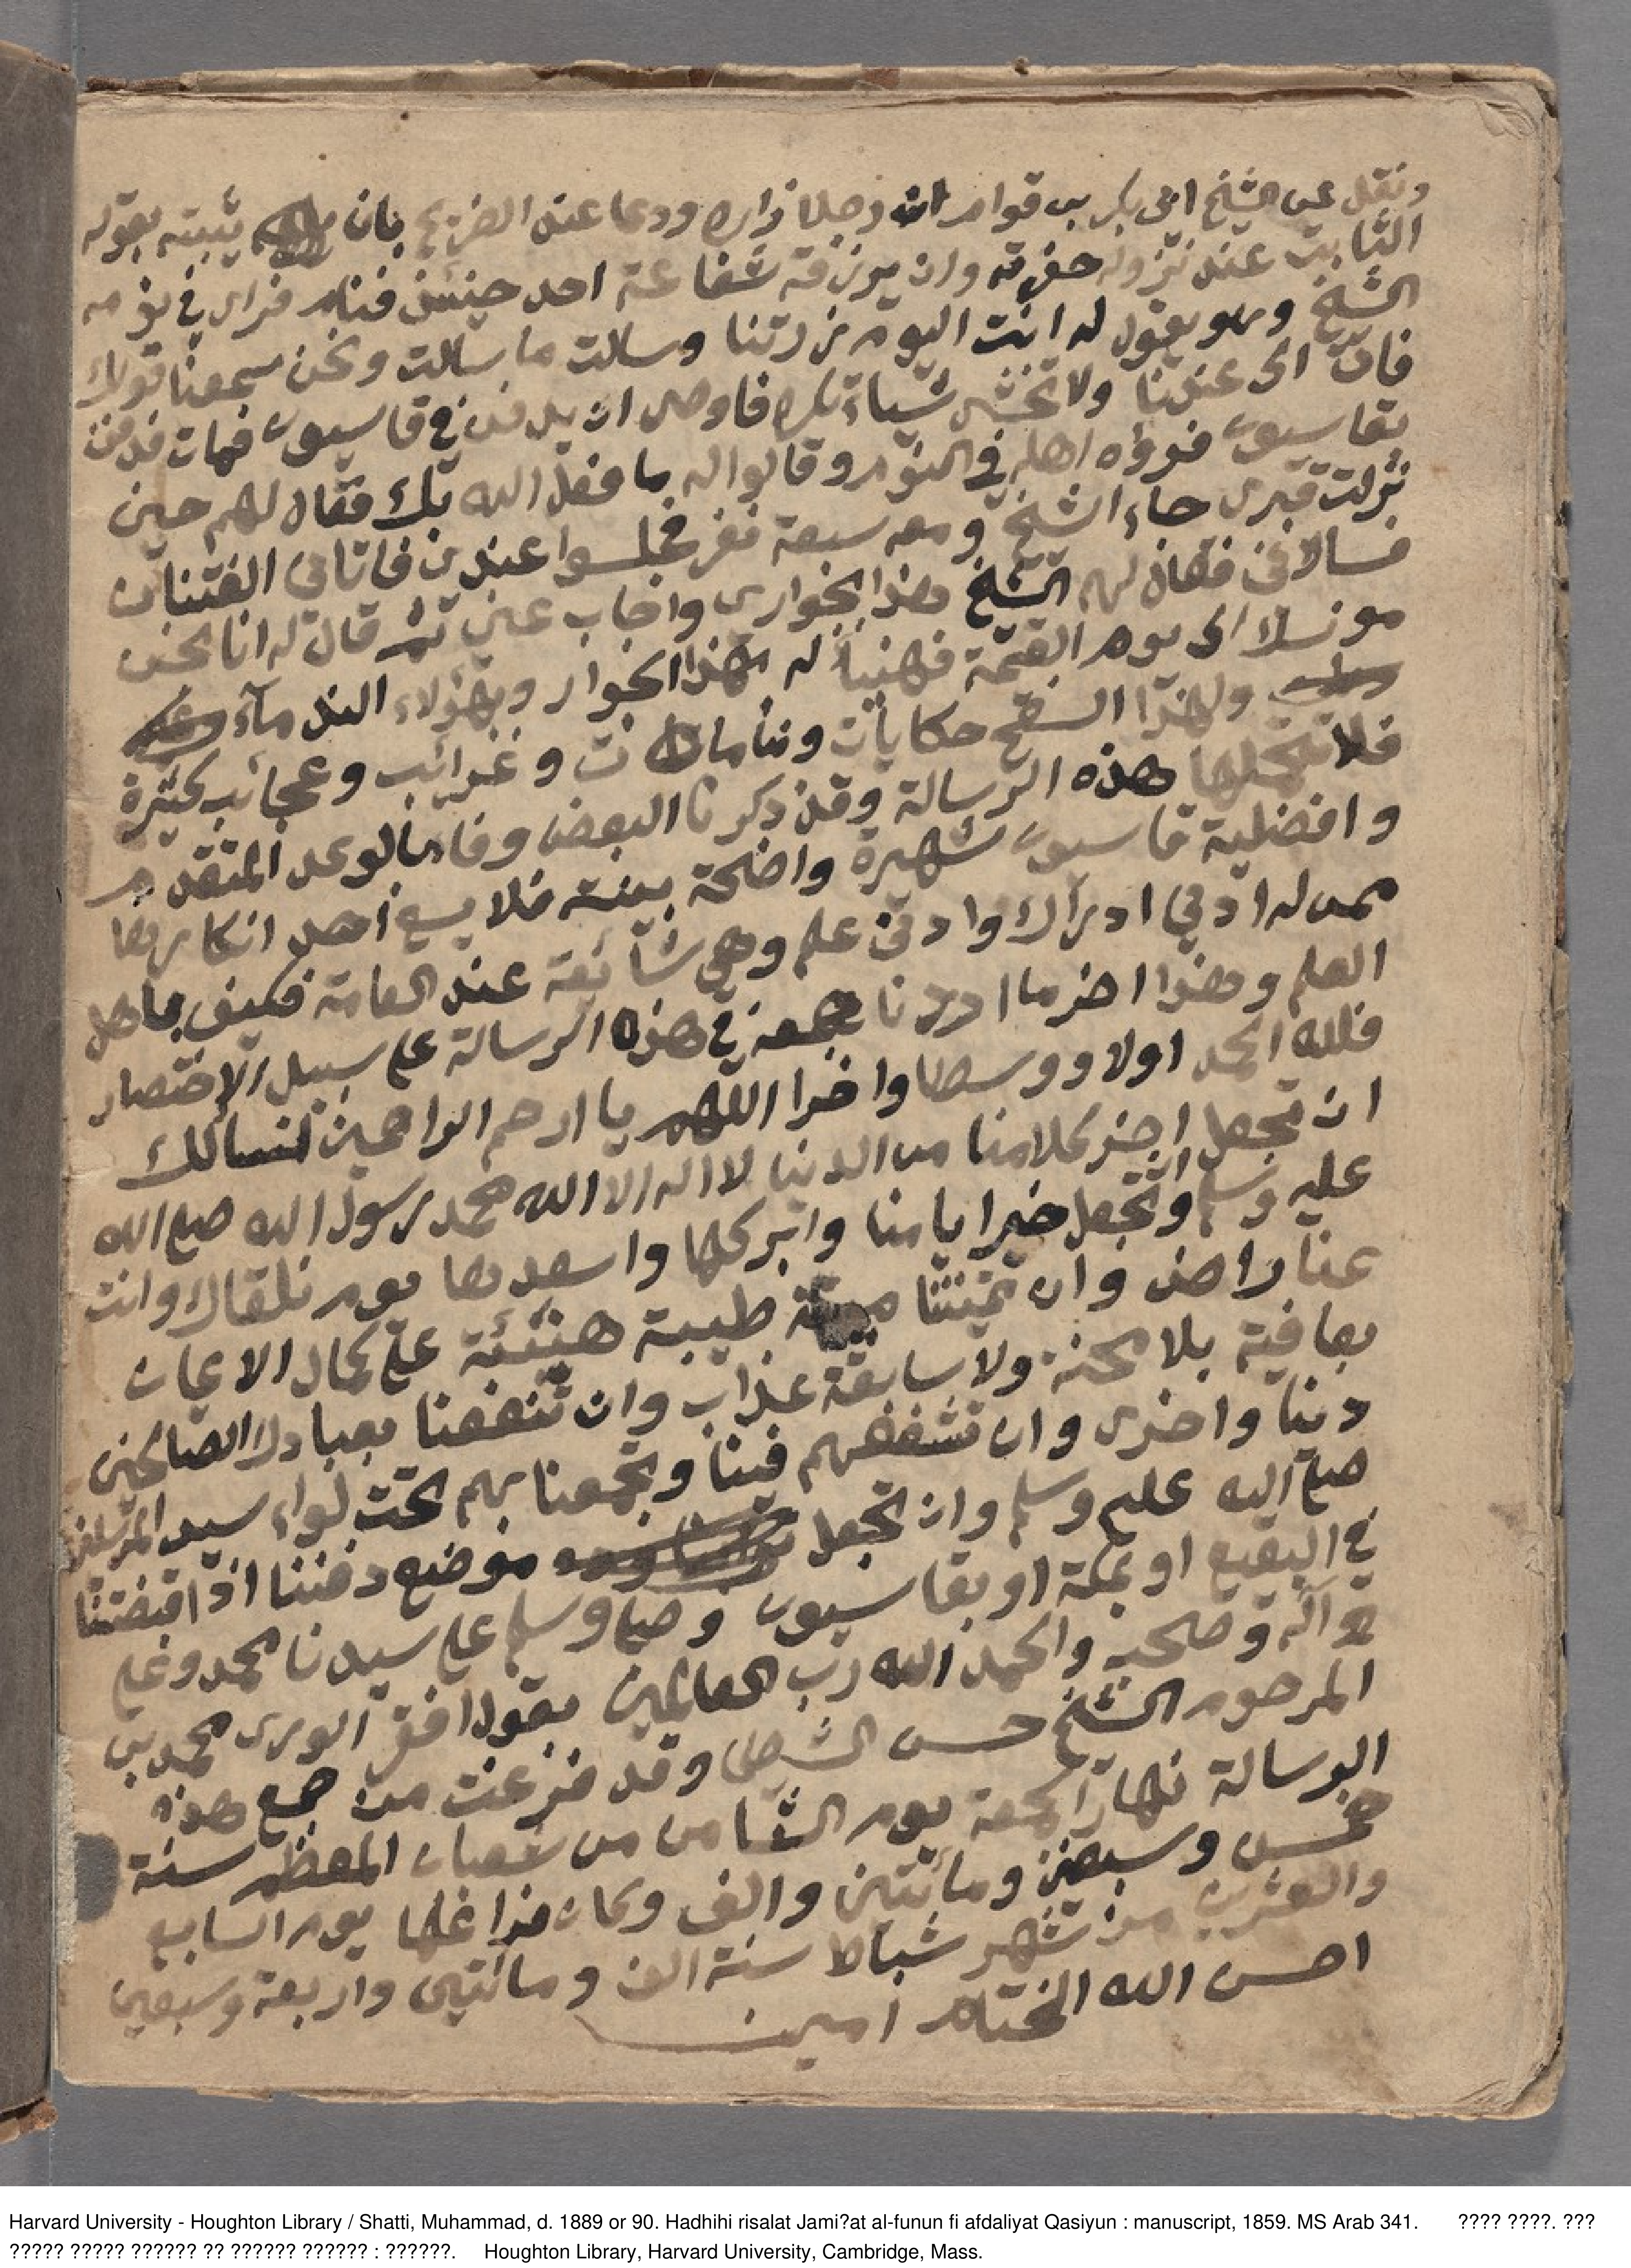 ونقل عن الشيخ ابي بكر بن قوام ان رجلا زاره ودعا عند الضريح بان يثبته بقوله
الثابت عند نزوله حفرته وان يرزقه شفاعة احد حينئذ فنام فراى في نومه
الشيخ وهو يقول له انت اليوم زرتنا وسالت ما سالت ونحن سمعنا قولك
فات الى عندنا ولا تخش شياء تكره فاوصى ان يدفن في قاسيون فمات فدفن
بقاسيون فرؤاه اهله في النوم وقالوا له ما فعل الله بك فقال لهم حين
نزلت قبرى جاء الشيخ ومعه سبعة نفر فجلسوا عندى فاتاني الفتنان
فسالاني فقال لهم الشيخ هذا بجوارى واجاب عني ثم قال له انا نحن
مونسك الى يوم القيمة فهنيأ له بهذا الجوار وبهؤلاء الندمآء
ولهذا السفح حكايات ومنامات وغرائب وعجائب كثيرة
فلا تحملها هذه الرسالة وقد ذكرنا البعض وفاء بالوعد المتقدم
وافضلية قاسيون شهيرة واضحة بينة فلا يسع احد انكارها
ممن له ادنى ادراك وادنى علم وهي شائعة عند العامة فكيف باهل
العلم وهذا اخر ما اردنا جمعه في هذه الرسالة على سبيل الإختصار
فلله الحمد اولا ووسطا واخرا اللهم يا ارحم الراحمين نسالك
ان تجعل اخر كلامنا من الدنيا لا اله الا الله محمد رسول الله صلى الله
عليه وسلم وان تجعل خير ايامنا وابركها واسعدها يوم نلقاك وانت
عنا راض وان تميتنا ميتة طيبة هنيئة على كمال الايمان
بعافية بلا محنة ولا سابقة عذاب وان تنفعنا بعبادك الصالحين
دنيا واخرى وان تشفعهم فينا وتجمعنا بهم تحت لواء سيد المرسلين
صلى الله عليه وسلم وان تجعل موضع دفننا اذا قبضتنا
في البقيع او بمكة او بقاسيون وصلى وسلم على سيدنا محمد وعلى
آله وصحبه والحمد الله رب العالمين يقول افقر الورى محمد بن
المرحوم الشيخ حسن الشطى وقد فرغت من جمع هذه
الرسالة نهار الجمعة يوم الثامن من شعبان المعظم سنة
خمس وسبعين ومائتين والف وكان فراغها يوم السابع
والعشرين من شهر شباط سنة الف ومائتين واربعة وسبعين
احسن الله الختام امين
Harvard University - Houghton Library / Shatti, Muhammad, d. 1889 or 90. Hadhihi risalat Jami?at al-funun fi afdaliyat Qasiyun : manuscript, 1859. MS Arab 341. ???? ????. ???
????? ????? ?????? ?? ?????? ?????? : ??????. Houghton Library, Harvard University, Cambridge, Mass.